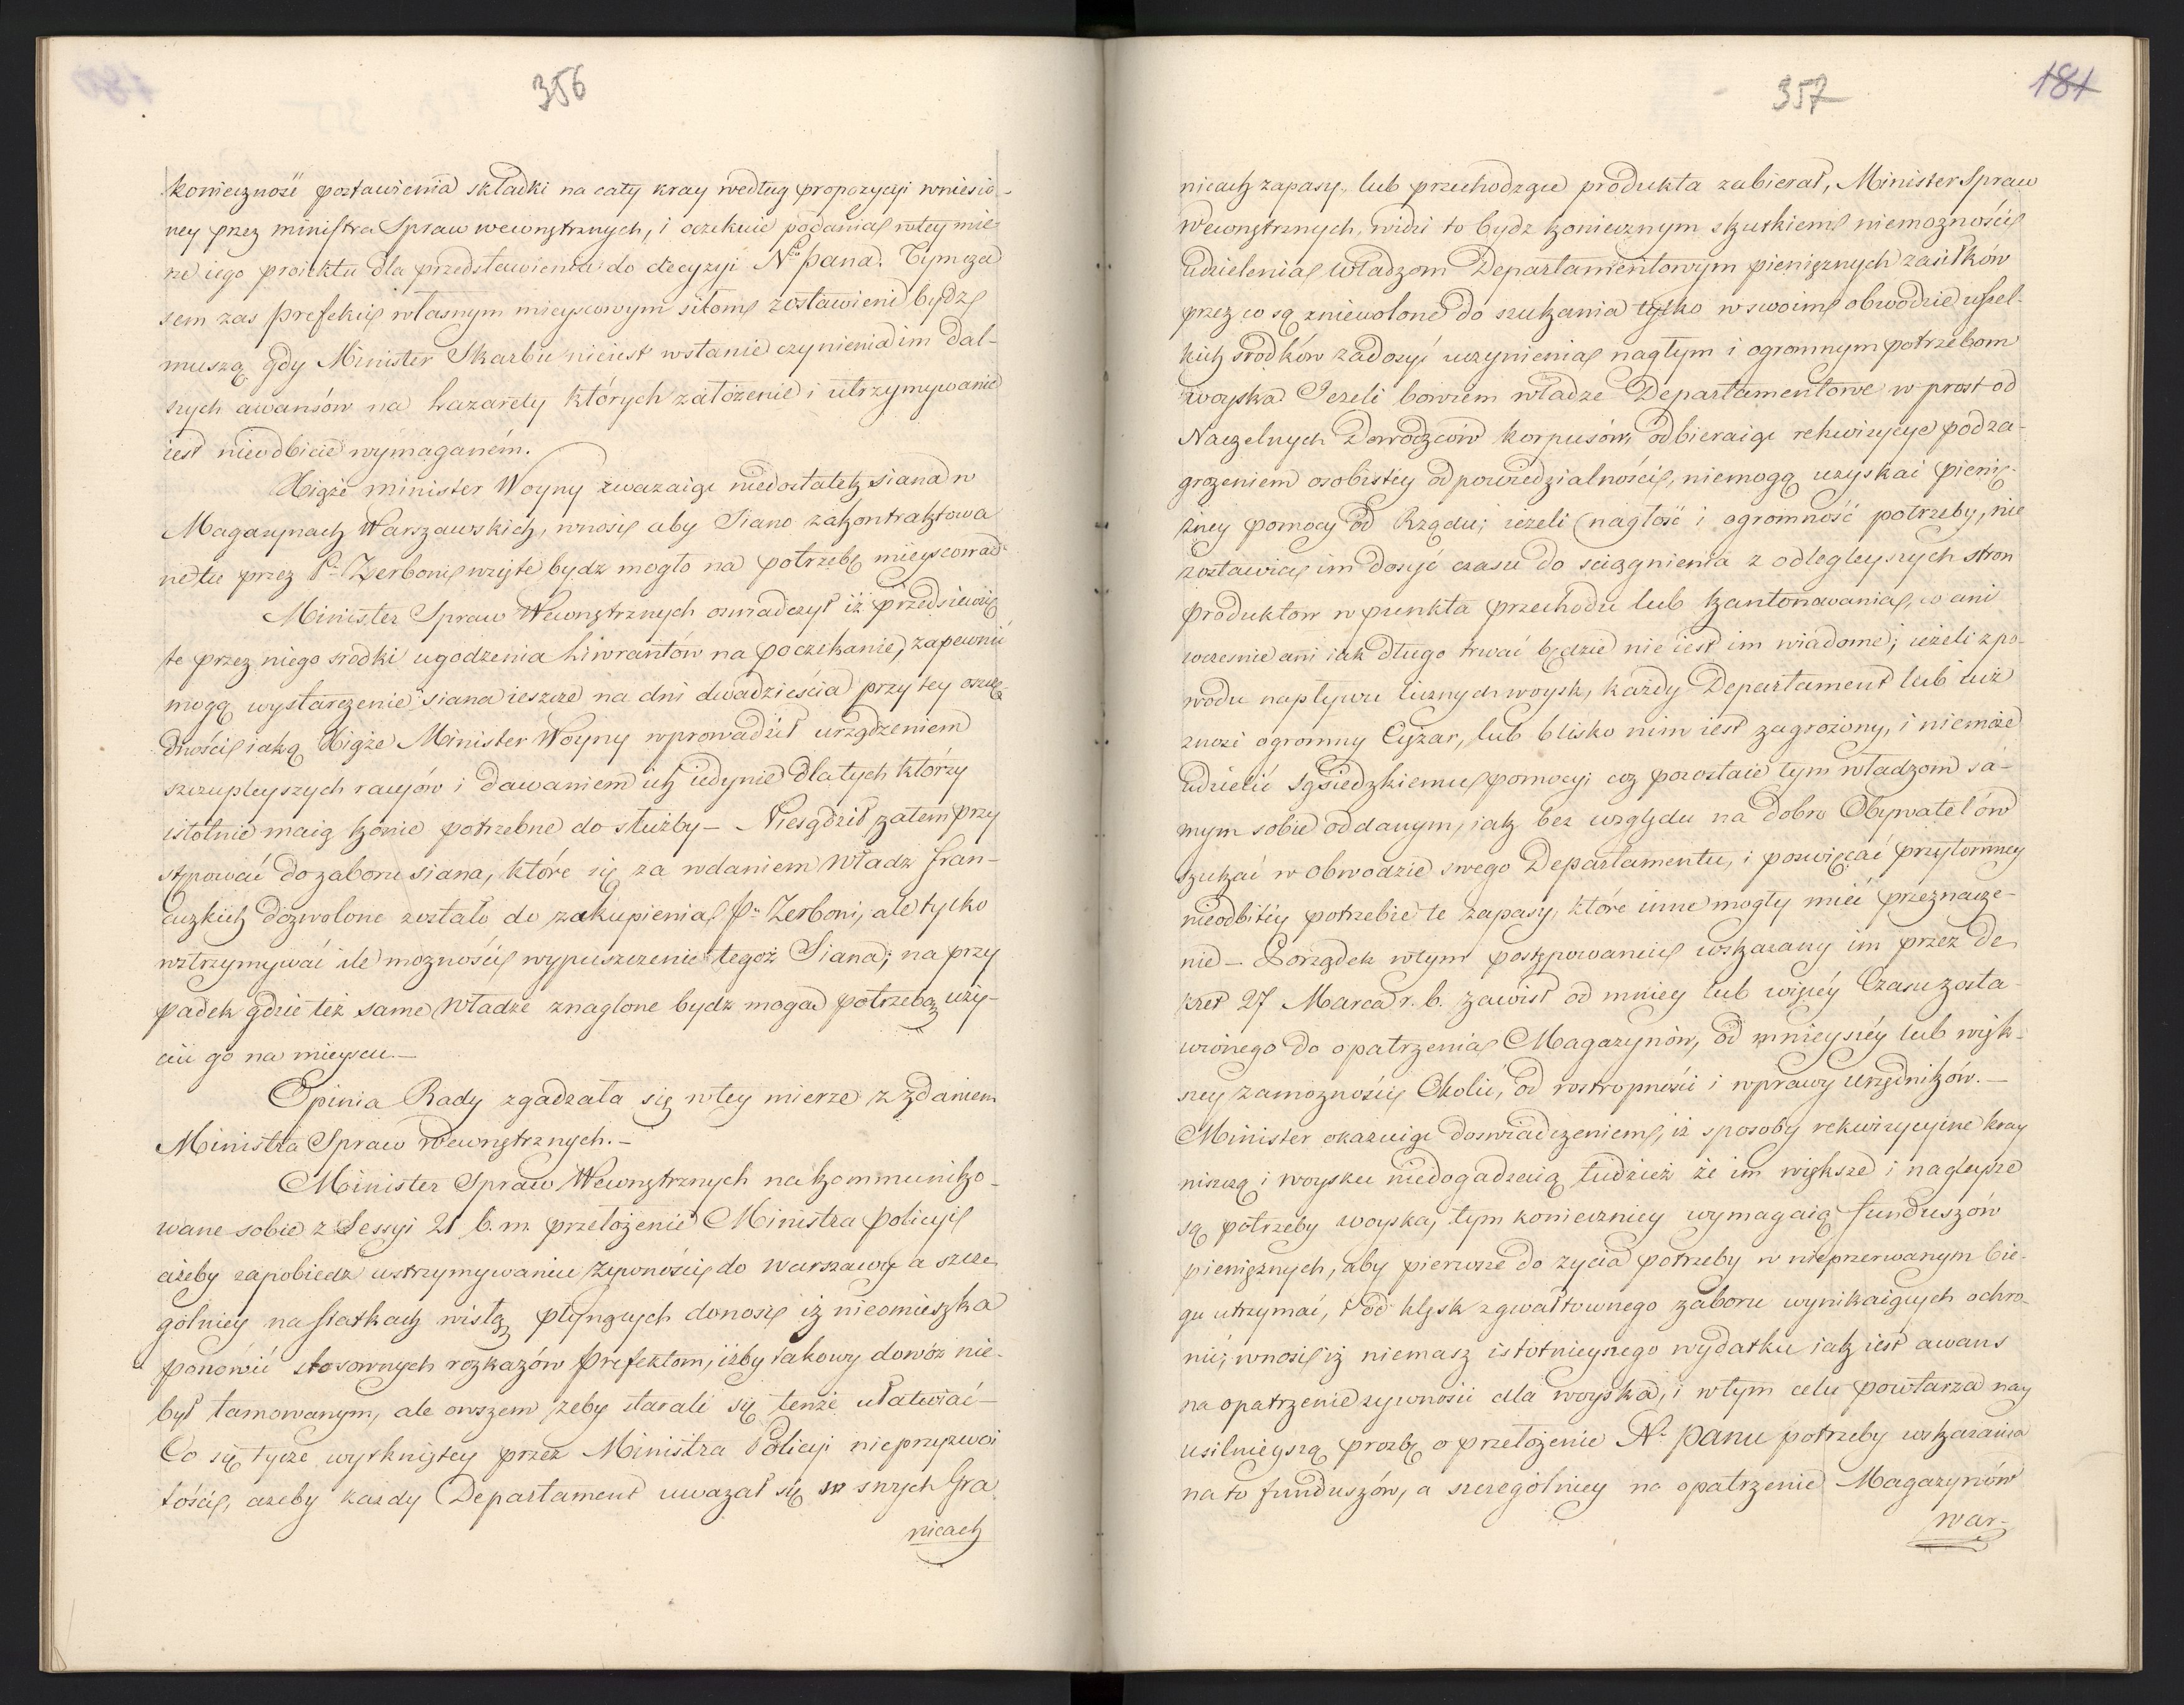 356
konieczność postawienia składki na cały kray według propozycyi wniesio-
ney przez ministra Spraw wewnętrznych, i oczekuie podania w tey mie-
rze iego proiektu dla przedstawienia do decyzyi N.º pana. Tymcza
sem zas prefekci własnym mieyscowym siłom zostawieni bydz
muszą gdy Minister Skarbu nie iest w stanie czynienia im dal-
szych awansów na Lazarety których założenie i utrzymywanie
iest nieodbicie wymaganém.
Xiąże minister Woyny zwazaiąc niedostatek siana w
Magazynach Warszawskich, wnosi aby Siano zakontraktowa
ne tu przez P. Zerboni wzięte bydz mogło na potrzebę mieyscową
Minister Spraw Wewnętrznych oswiadczył iż przedsięwzię
te przez niego srodki ugodzenia Liwrantów na poczekanie, zapewnić
mogą wystarczenie siana ieszcze na dni dwadzieścia przy tey oszczę
dności iaką Xiąże Minister Woyny wprowadził urządzeniem
szczupleyszych racyów i dawaniem ich iedynie dla tych którzy
istotnie maią konie potrzebne do służby – Niesądził zatem przy
stępować do zaboru siana, które się za wdaniem Władz fran-
cuzkich dozwolone zostało do zakupienia Pu Zerboni, ale tylko
wztrzymywać ile mozności wypuszczenie tegoż Siana; na przy
padek gdzie też same Władze znaglone bydz mogą potrzebą uży-
ciu go na mieyscu. –
Opinia Rady zgadzała się w tey mierze z zdaniem
Ministra Spraw Wewnętrznych. –
Minister Spraw Wewnętrznych na kommuniko-
wane sobie z Sessyi 21 b. m. przełożenie Ministra Policyi
ażeby zapobiedz wstrzymywaniu żywności do Warszawy a szcze
gólniey na statkach wisłą płynących donosi iż nieomieszka
ponowić stosownych rozkazów Prefektom, iżby takowy dowóz nie-
był tamowanym, ale owszem zeby starali się tenże ułatwiać –
Co się tycze wytkniętey przez Ministra Policyi nieprzyzwoi
tości, azeby kazdy Departament uwazał się w swych Gra
nicach
357
181
nicach zapasy, lub przechodzące produkta zabierał, Minister Spraw
Wewnętrznych, widzi to bydz koniecznym skutkiem niemozności
udzielenia Władzom Departamentowym pieniężnych zasiłków
przez co są zniewolone do szukania tylko w swoim obwodzie wszel-
kich srodków zadosyć uczynienia nagłym i ogromnym potrzebom
woyska. Jeżeli bowiem władze Departamentowe wprost od
Naczelnych Dowodzców korpusów, odbieraiąc rekwizycye pod za-
grozeniem osobistey odpowiedzialności, niemogą uzyskać pienię-
żney pomocy od Rządu; ieżeli nagłość i ogromność potrzeby, nie
zostawia im dosyć czasu do sciągnienia z odlegleyszych stron
produktow w punkta przechodu lub kantonowania, co ani
wczesnie ani iak długo trwać będzie nie iest im wiadome; ieżeli z po-
wodu napływu licznych woysk, każdy Departament lub iuż
znosi ogromny Ciężar, lub blisko nim iest zagrożony, i niemoże
udzielić sąsiedzkiemu pomocy; coż pozostaie tym władzom sa-
mym sobie oddanym, iak bez względu na dobro Obywatelów
szukać w obwodzie swego Departamentu, i poswięcać przytomney
nieodbitey potrzebie te zapasy, które inne mogły mieć przeznacze-
nie – Porządek w tym postępowaniu wskazany im przez De
kret 27 Marca r. b. zawisł od mniey lub więcéy Czasu zosta-
wionego do opatrzenia Magazynów, od mnieyszéy lub więk-
szey zamozności Okolic, od roztropności i wprawy urzędników. –
Minister okazuiąc doswiadczeniem, iż sposoby rekwizycyine kray
niszczą i woysku niedogadzaią tudzież że im większe i nagleysze
są potrzeby woyska, tym konieczniey wymagaią funduszów
pieniężnych, aby pierwsze do zycia potrzeby w nieprzerwanym bie-
gu utrzymać, i od klęsk zgwałtownego zaboru wynikaiących ochro-
nić; wnosi iż niemasz istotnieyszego wydatku iak iest awans
na opatrzenie zywnosci dla woyska, i w tym celu powtarza nay
usilnieyszą prozbę o przełożenie N. panu potrzeby wskazania
na to funduszów, a szczególniey na opatrzenie Magazynów
War-